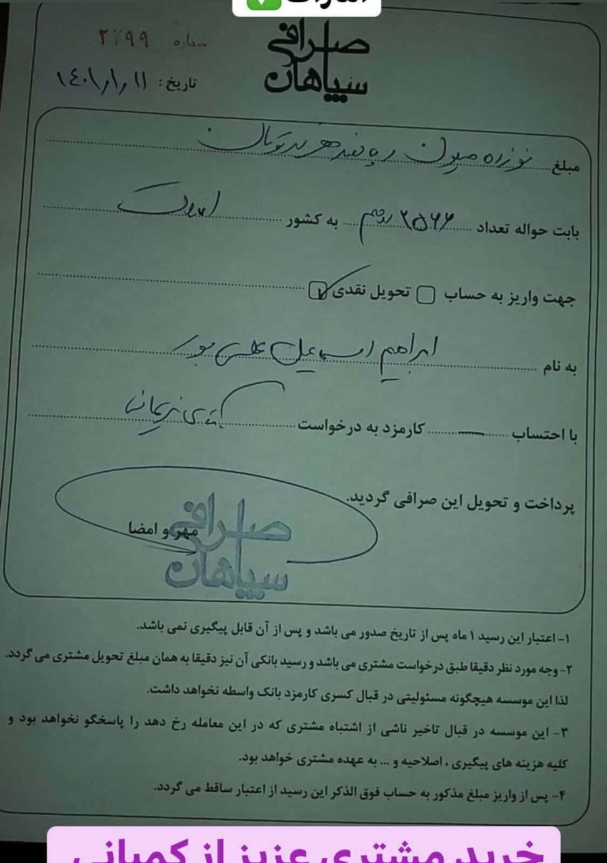 امارات ✅
صرافی سپاهان
شماره ۲۶۹۹
تاریخ: ۱۴۰۱/۱/۱۱
مبلغ نوزده میلیون و پانصد هزار تومان
بابت حواله تعداد ۲۵۶۶ درهم به کشور امارات
جهت واریز به حساب تحویل نقدی
به نام ابراهیم اسماعیل علی پور
با احتساب — کارمزد به درخواست آقای نریمان
پرداخت و تحویل این صرافی گردید.
مهر و امضا
صرافی سپاهان
۱- اعتبار این رسید ۱ ماه پس از تاریخ صدور می باشد و پس از آن قابل پیگیری نمی باشد.
۲- وجه مورد نظر دقیقا طبق درخواست مشتری می باشد و رسید بانکی آن نیز دقیقا به همان مبلغ تحویل مشتری می گردد.
لذا این موسسه هیچگونه مسئولیتی در قبال کسری کارمزد بانک واسطه نخواهد داشت.
۳- این موسسه در قبال تاخیر ناشی از اشتباه مشتری که در این معامله رخ دهد را پاسخگو نخواهد بود و
کلیه هزینه های پیگیری ، اصلاحیه و ... به عهده مشتری خواهد بود.
۴- پس از واریز مبلغ مذکور به حساب فوق الذکر این رسید از اعتبار ساقط می گردد.
خرید مشتری عزیز از کمپانی